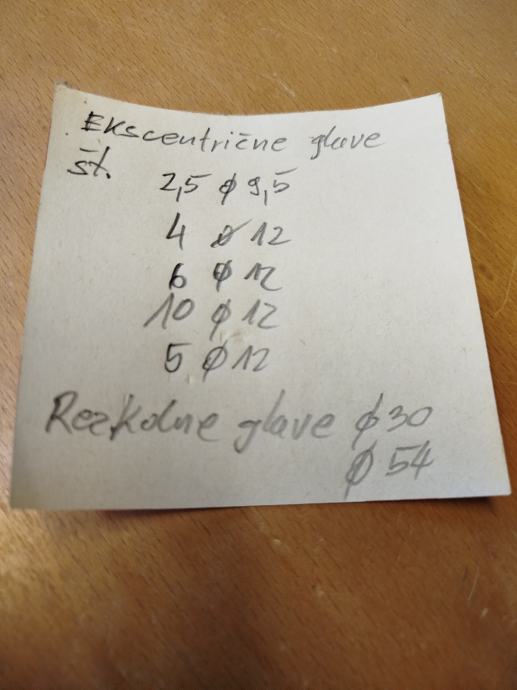 Ekscentrične glave
št.
2,5 ϕ 9,5
4 ϕ 12
6 ϕ 12
10 ϕ 12
5 ϕ 12
Rezkalne glave ϕ 30
ϕ 54